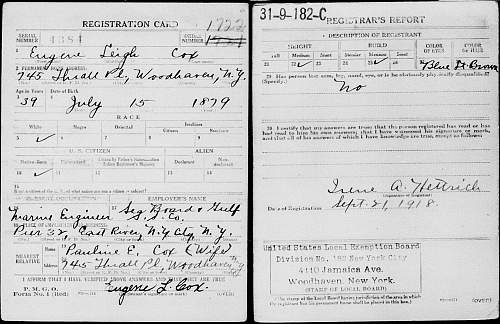 REGISTRATION CARD
SERIAL NUMBER 4384
ORDER NUMBER 1722
Eugene Leigh Cox
2 PERMANENT HOME ADDRESS:
745 Thrall Pl, Woodhaven, N.Y.
Age in Years
Date of Birth
39 July 15 1879
RACE
White
Negro
Oriental
Indian
Citizen
Noncitizen
U. S. CITIZEN
ALIEN
Native Born
Naturalized
If not a citizen of the U.S., of what nation are you a citizen or subject?
PRESENT OCCUPATION
EMPLOYER'S NAME
Marine Engineer
Pier 32, East River, N.Y. City, N.Y.
NEAREST RELATIVE
Pauline E. Cox (Wife)
745 Thrall Pl, Woodhaven N.Y.
I AFFIRM THAT I HAVE VERIFIED ABOVE ANSWERS AND THAT THEY ARE TRUE
P. M. G. O.
Form No. 1 (Red)
Eugene L. Cox
31-9-182-C
REGISTRAR'S REPORT
DESCRIPTION OF REGISTRANT
HEIGHT
BUILD
COLOR OF EYES
COLOR OF HAIR
Tall
Medium
Short
Slender
Medium
Stout
Blue
Brown
29 Has person lost arm, leg, hand, eye, or is he obviously physically disqualified?
(Specify.)
No
30 I certify that my answers are true; that the person registered has read or has had read to him his own answers; that I have witnessed his signature or mark, and that all of his answers of which I have knowledge are true, except as follows:
Irene A. Hettrich
Date of Registration Sept. 21, 1918.
United States Local Exemption Board
Division No. 182 New York City
4110 Jamaica Ave.
Woodhaven, New York.
(STAMP OF LOCAL BOARD)
(The stamp of the Local Board having jurisdiction of the area in which the registrant has his permanent home shall be placed in this box.)
(OVER)